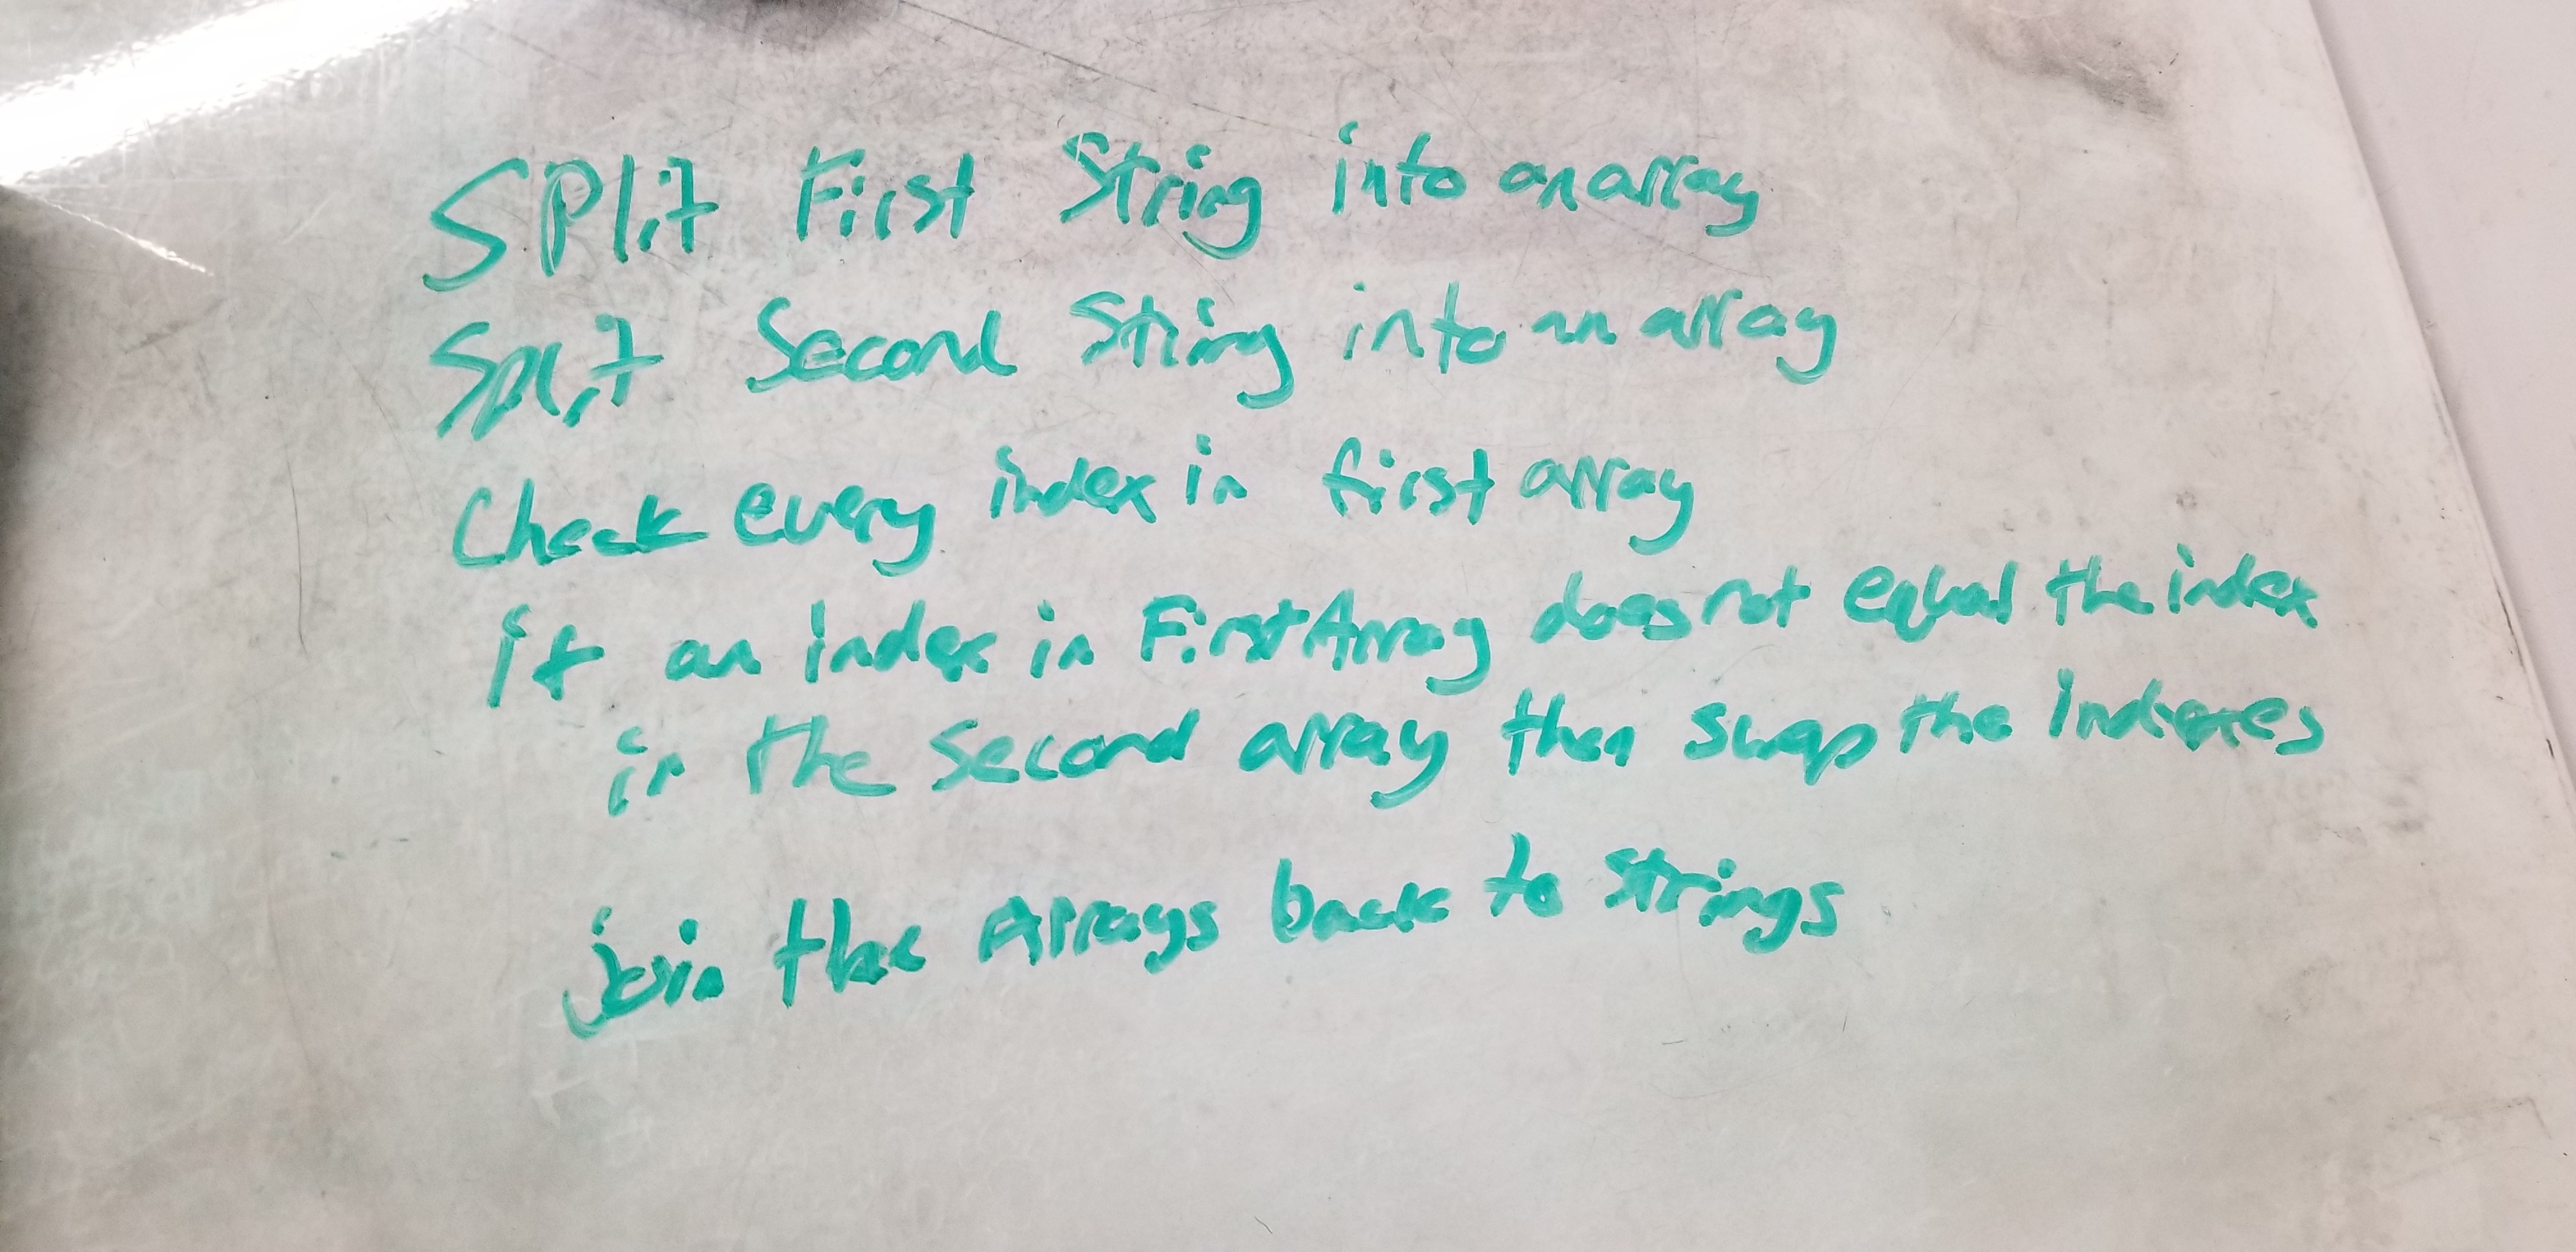 Split First String into an array
Split Second String into an array
Check every index in first array
if an index in First Array does not equal the index
in the second array then swap the indexes
join the Arrays back to strings